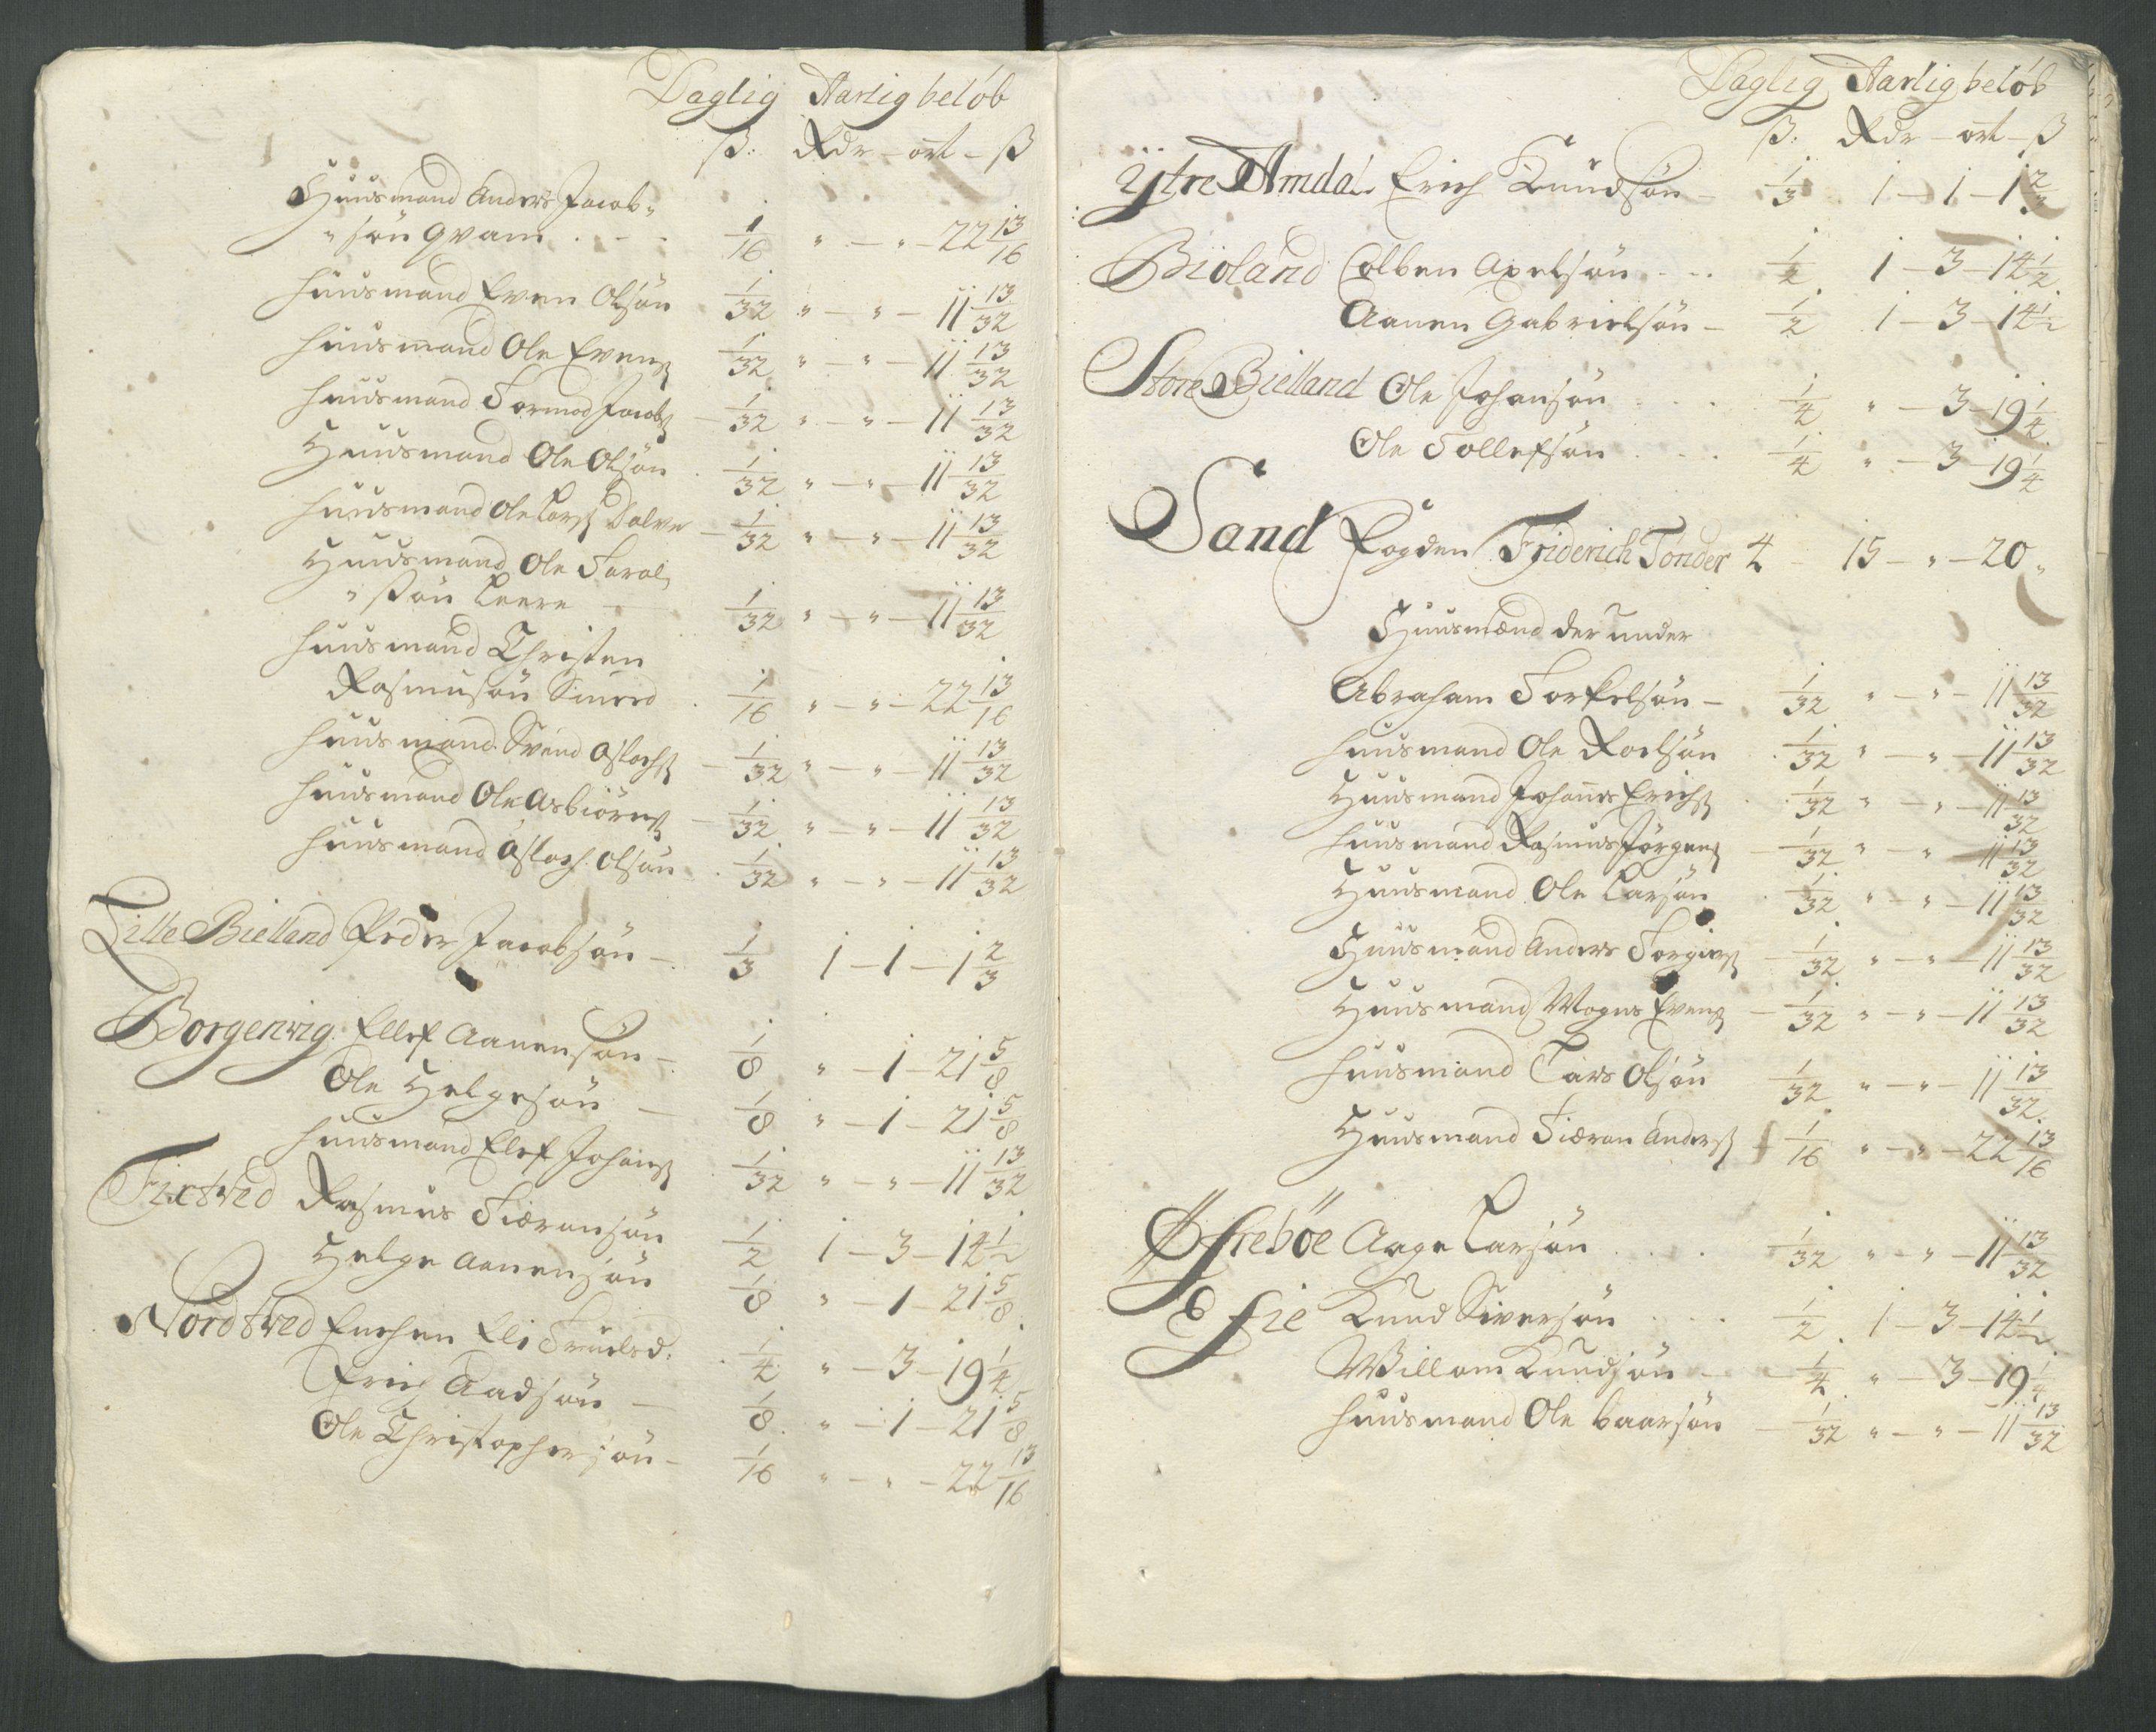 Daglig Aarlig beløb
ß: Rdr – ort – ß
Huusmand Anders Jacob„
„søn Qvam . - - 1/16 „ – „ – 22 13/16
Huusmand Even Olsøn 1/32 „ – „ – 11 13/32
Huusmand Ole Evenß 1/32 „ – „ – 11 13/32
Huusmand Tormod Jacobß – 1/32 „ – „ – 11 13/32
Huusmand Ole Olsøn . 1/32 „ – „ – 11 13/32
Huusmand Ole Larß Dalen – 1/32 „ – „ – 11 13/32
Huusmand Ole Taral„
„ßøn Leere – 1/32 „ – „ – 11 13/32
Huusmand Christen
Rasmusøn . 1/16 „ – „ – 22 13/16
Huusmand Svend Aslachß – 1/32 „ – „ – 11 13/32
Huusmand Ole Asbiörnß – 1/32 „ – „ – 11 13/32
Huusmand Aslach Olsøn . 1/32 „ – „ – 11 13/32
Lille Bielland Peder Jacobsøn – 1/3 1 – 1 – 1 2/3
Borgenvig Ellef Aanensøn – 1/8 „ – 1 – 21 5/8
Ole Helgesøn – 1/8 „ – 1 – 21 5/8
Huusmand Elef Johanß . 1/32 „ – „ – 11 13/32
Fixtved Rasmus Siøransøn 1/2 1 – 3 – 14 1/2
Helge Aanensøn 1/8 „ – 1 – 21 5/8
Nordtved Enchen Eli Truelsd. . 1/4 „ – 3 – 19 1/4
Erich Aadsøn – 1/8 „ – 1 – 21 5/8
Ole Christophersøn – 1/16 „ – „ – 22 13/16
Daglig Aarlig beløb
ß: Rdr – ort – ß
Ytre Amdal Erich Knudsøn – 1/3 1 – 1 – 1 2/3
Biöland Colben Axelsøn - . . 1/2 1 – 3 – 14 1/2
Aanen Gabrielsøn – 1/2 1 – 3 – 14 1/2
Store Bielland Ole Johansøn . . . 1/4 „ – 3 – 19 1/4
Ole Tollefsøn . . . 1/4 „ – 3 – 19 1/4
Sand Fogden Friderich Tönder 4 – 15 – „ – 20 „
Huusmænd der under
Abraham Torkelsøn – 1/32 „ – „ – 11 13/32
Huusmand Ole Roelsøn . 1/32 „ – „ – 11 13/32
Huusmand Johannes Erichß . 1/32 „ – „ – 11 13/32
Huusmand Rasmus Jörgenß – 1/32 „ – „ – 11 13/32
Huusmand Ole Larsøn . 1/32 „ – „ – 11 13/32
Huusmand Anders Torgierß – 1/32 „ – „ – 11 13/32
Huusmand Mogns Evenß – 1/32 „ – „ – 11 13/32
Huusmand Lars Olsøn 1/32 „ – „ – 11 13/32
Huusmand Siøran Anderß 1/16 „ – „ – 22 13/16
Aage Larsøn . . . . 1/32 „ – „ – 11 13/32
Efie Knud Siversøn . . . 1/2 1 – 3 – 14 1/2
Willom Knudsøn – 1/4 „ – 3 – 19 1/4
Huusmand Ole Baarsøn – 1/32 „ – „ – 11 13/32